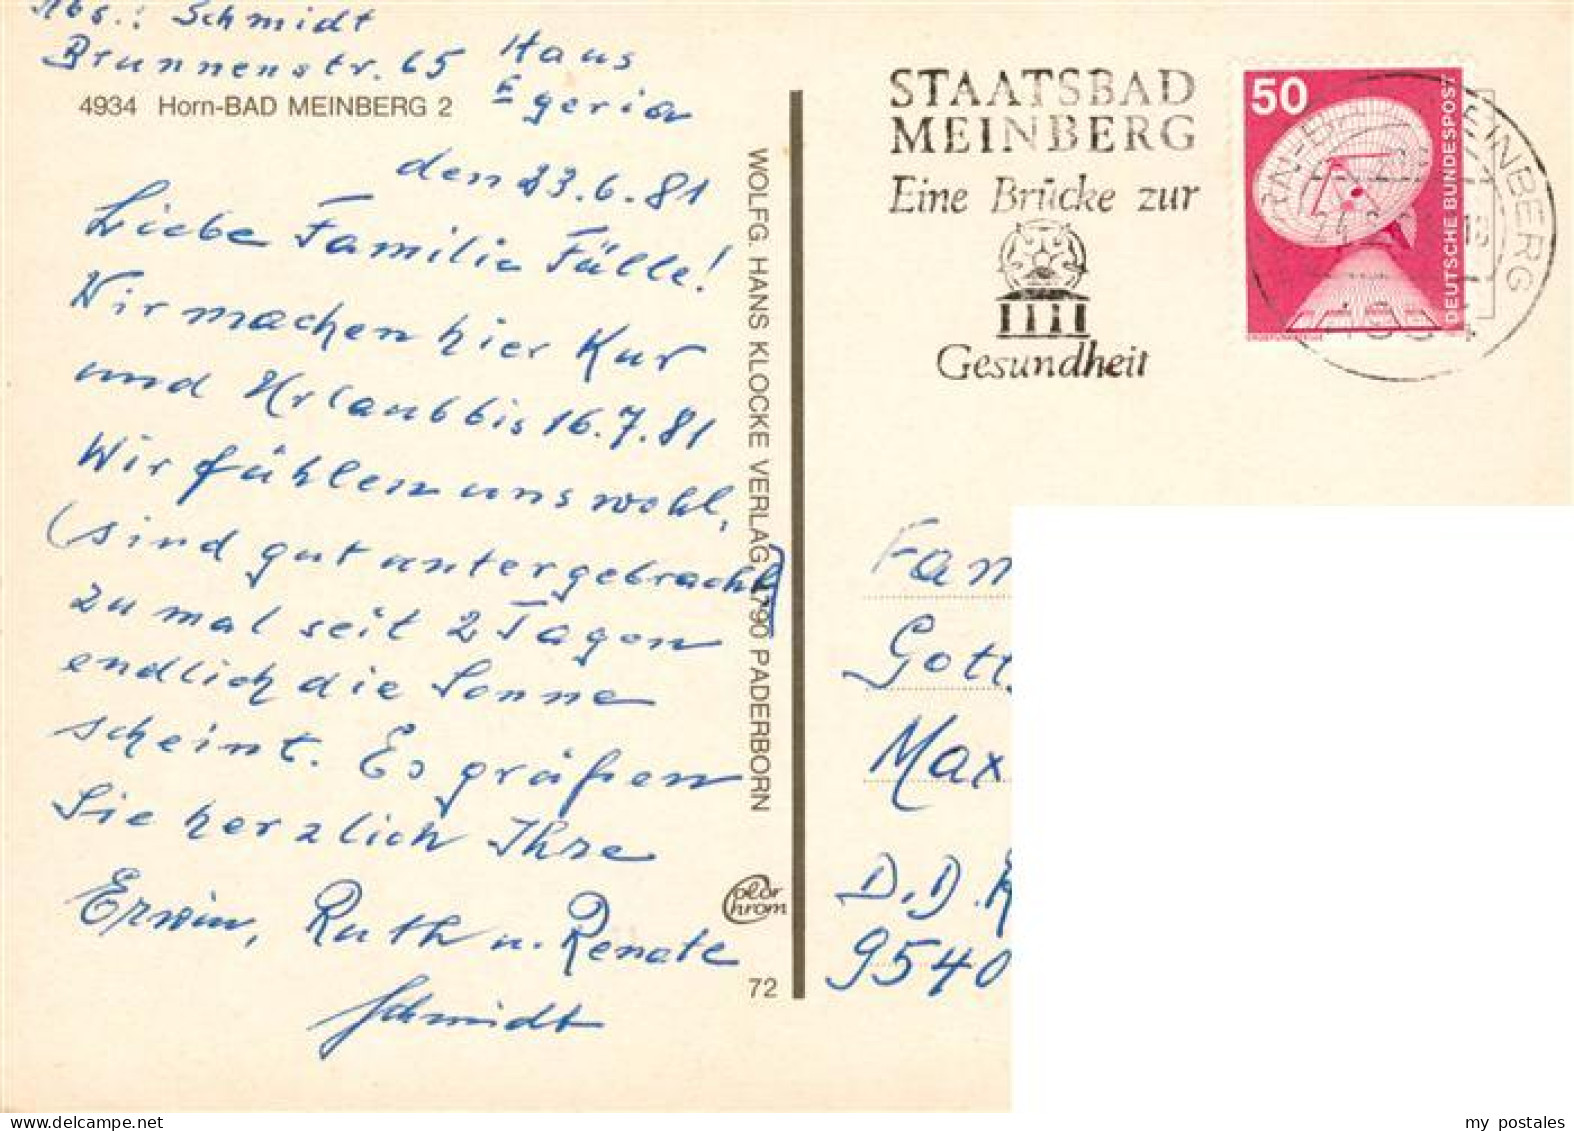 Abs.: Schmidt
Brunnenstr. 65 Haus
Egeria
4934 Horn-BAD MEINBERG 2
den 23.6.81
Liebe Familie Fälle!
Wir machen hier Kur
und Urlaub bis 16.7.81
Wir fühlen uns wohl,
(sind gut untergebracht)
zumal seit 2 Tagen
endlich die Sonne
scheint. Es grüßen
Sie herzlich Ihre
Erwin, Ruth u. Renate
Schmidt
WOLFG. HANS KLOCKE VERLAG 4790 PADERBORN
Color
Chrom
72
STAATSBAD
MEINBERG
Eine Brücke zur
Gesundheit
50
DEUTSCHE BUNDESPOST
Fam
Gott
Max
D.D.R
9540
my postales